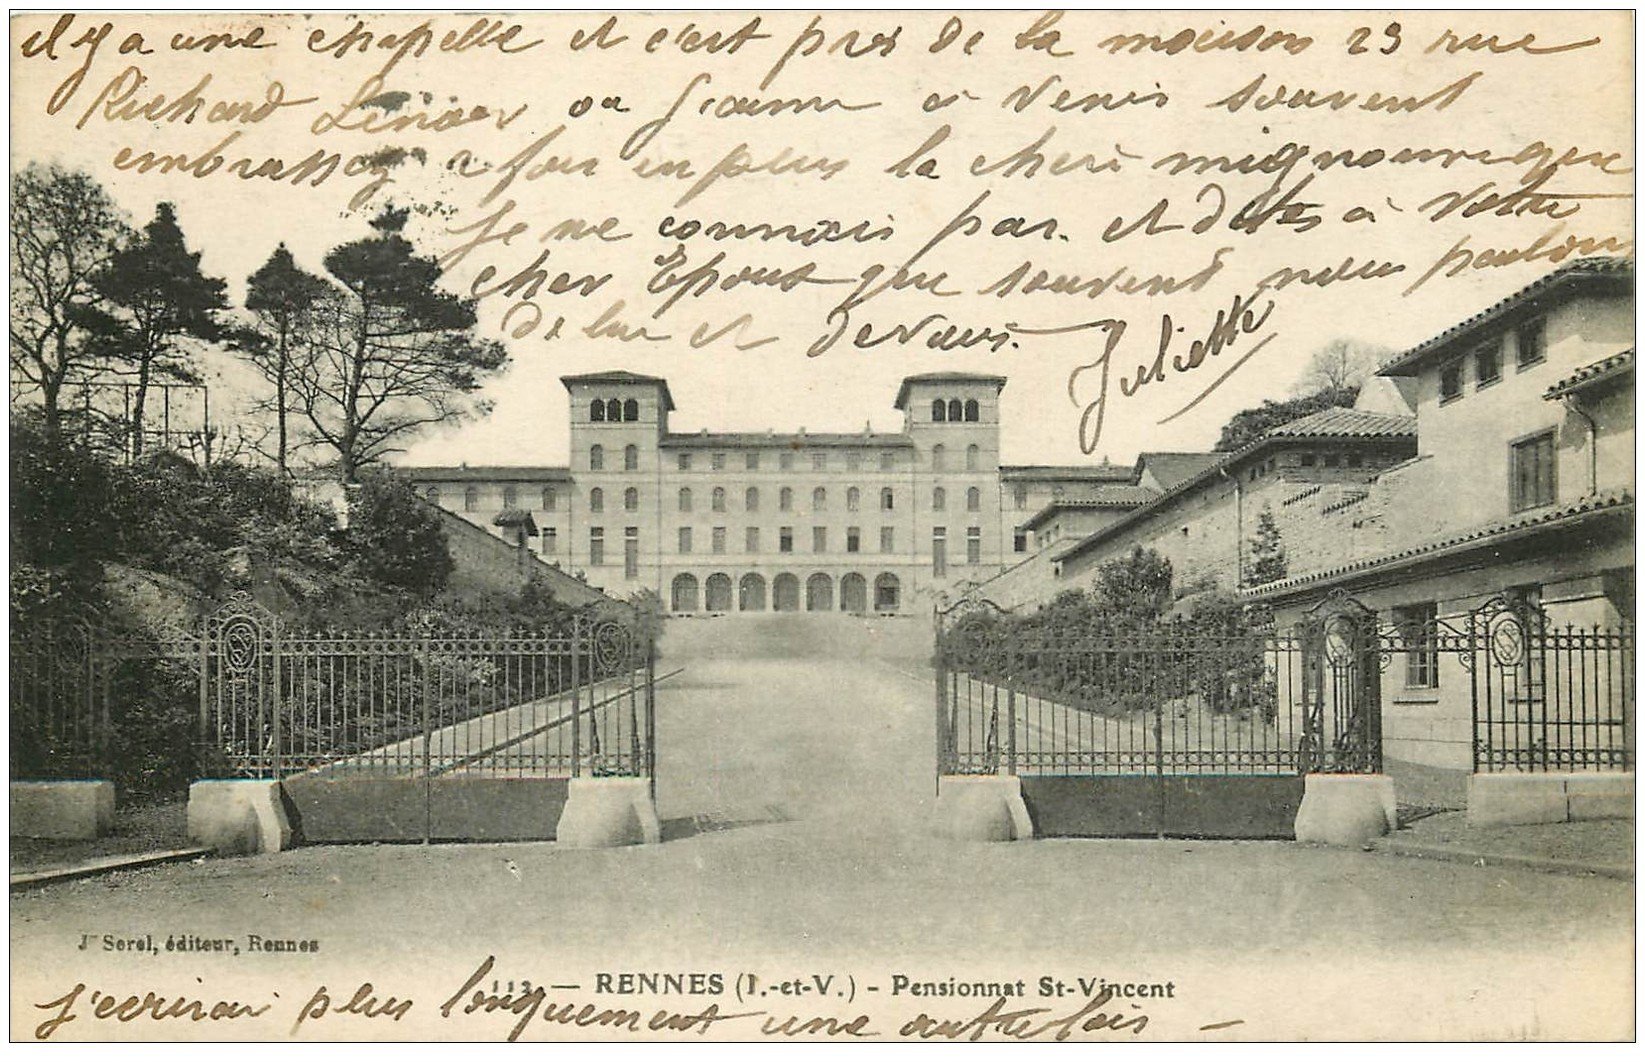 il y a une chapelle et c'est pres de la maison 29 rue
Richard Lenoir ou Jeanne a Venir souvent
embrassez 2 fois en plus la cheri mignonne que
Je ne connais pas. et dites à Votre
cher Epoux que souvent nous parlons
de lui et de Vous.
Juliette
Jne Sorel, éditeur, Rennes
113. — RENNES (I.-et-V.) - Pensionnat St-Vincent
J'ecrirai plus longuement une autre fois —